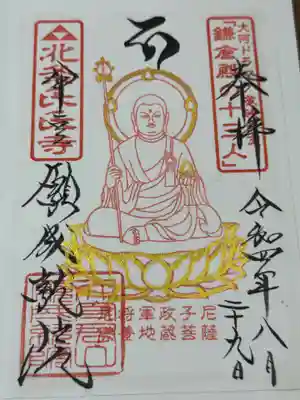 奉拝
大河ドラマ
「鎌倉殿の十三人」
北条氏
寺
願成就院
令和四年八月
二十九日
将軍政子尼
養地蔵菩薩